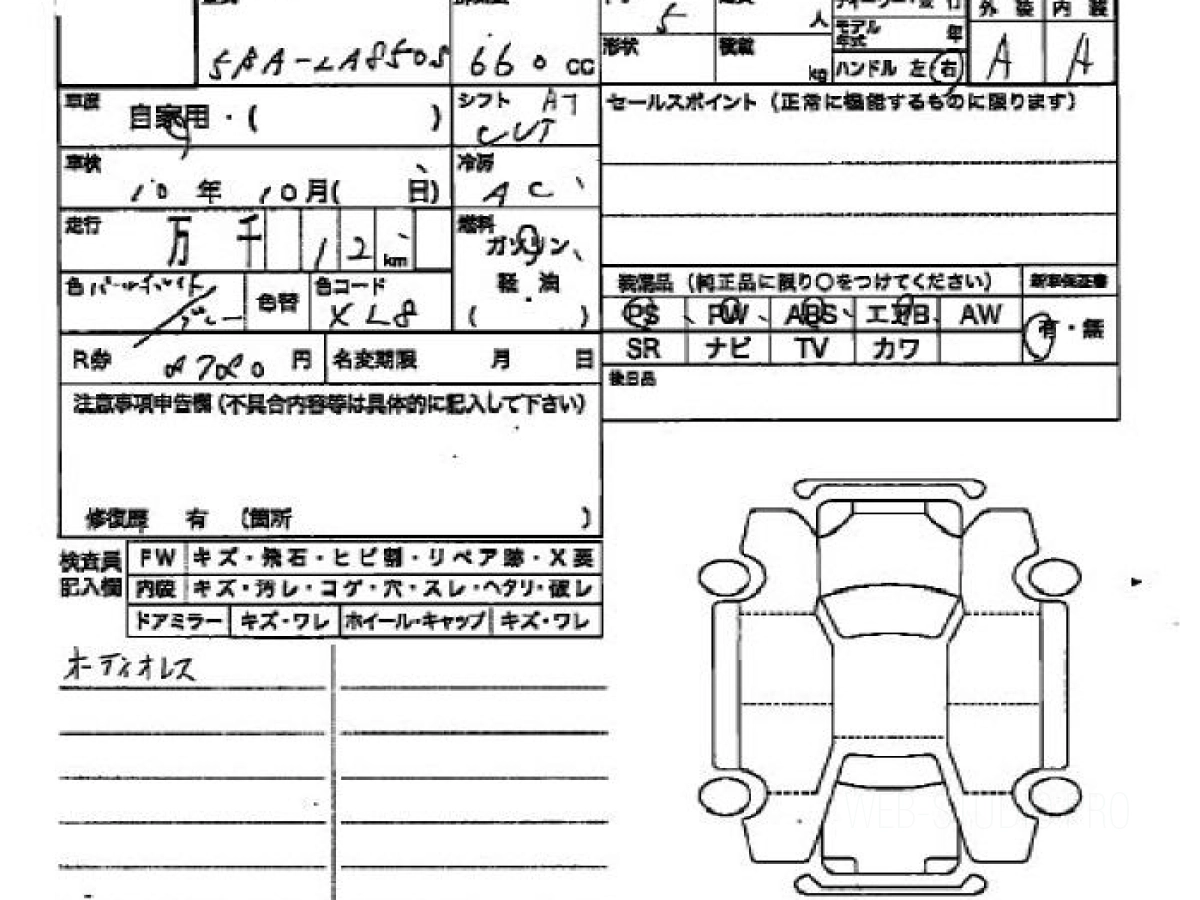 5BA-LA850S 660 cc
5 人
形状 積載 kg
モデル年式 年
ハンドル 左・右
外装 内装
A A
車歴 自家用・( )
シフト AT
CVT
セールスポイント (正常に機能するものに限ります)
車検 10年 10月( 日)
冷房 AC
走行 万 千 12 km
燃料 ガソリン、
軽・油
( )
色 パールホワイト/グレー
色替
色コード XL8
装備品 (純正品に限り〇をつけてください) 新車保証書
PS、PW、ABS、エアB、AW
有・無
SR ナビ TV カワ
R券 円 名変期限 月 日
後日品
注意事項申告欄 (不具合内容等は具体的に記入して下さい)
修復歴 有 (箇所 )
検査員記入欄
FW キズ・飛石・ヒビ割・リペア跡・X要
内装 キズ・汚レ・コゲ・穴・スレ・ヘタリ・破レ
ドアミラー キズ・ワレ ホイール・キャップ キズ・ワレ
オーディオレス